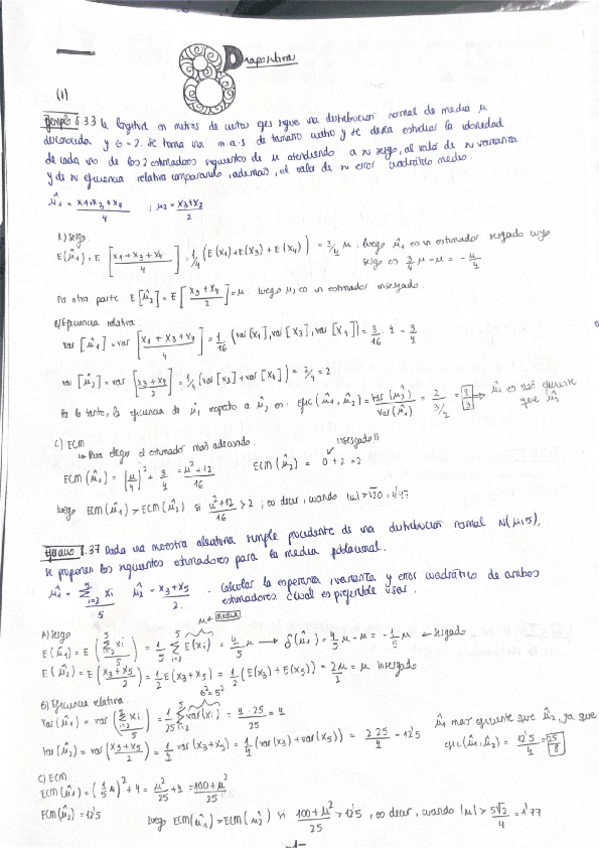 8 Diapositiva
(1)
Ejemplo 8.33 la longitud en metros de cierto sigue una distribución normal de media μ
desconocida y σ=2. Se toma una m.a.s de tamaño cuatro y se desea estudiar la idoneidad
de cada uno de los 2 estimadores siguientes de μ atendiendo a su sesgo, al valor de su varianza
y de su eficiencia relativa comparando, además, el valor de su error cuadrático medio.
μ̂1 = x1+x3+x4 / 4 ; μ2 = x3+x4 / 2
A) Sesgo.
E(μ̂1) = E [x1+x3+x4 / 4] = 1/4 (E(x1)+E(x3)+E(x4)) = 3/4 μ. luego μ̂1 es un estimador sesgado cuyo
sesgo es 3/4 μ - μ = - μ/4
Por otra parte E[μ̂2] = E[x3+x4 / 2] = μ. luego μ̂2 es un estimador insesgado.
B) Eficiencia relativa
var[μ̂1] = var [x1+x3+x4 / 4] = 1/16 (var[x1], var[x3], var[x4]) = 3/16 · 4 = 3/4
var[μ̂2] = var [x3+x4 / 2] = 1/4 (var[x3] + var[x4]) = = 2
Por lo tanto, la eficiencia de μ̂1 respecto a μ̂2 es: efic(μ̂1, μ̂2) = var(μ̂2) / var(μ̂1) = = → μ̂1 es más eficiente
que μ̂2
C) ECM
↳ Para elegir el estimador más adecuado. insesgado!!
ECM(μ̂1) = (μ/4)² + = μ²+12 / 16 ECM(μ̂2) = 0+2 = 2
luego ECM(μ̂1) > ECM(μ̂2) si μ²+12 / 16 > 2 ; es decir, cuando |μ| > √20 = 4'47
Ejercicio 8.37 Dada una muestra aleatoria simple procedente de una distribución normal N(μ,5),
se proponen los siguientes estimadores para la media poblacional.
μ̂1 = Σ(i=2, 5) xi / 5 μ̂2 = x3+x5 / 2. · Calcular la esperanza, varianza y error cuadrático de ambos
estimadores ¿Cual es preferible usar?
μ ← MEDIA
A) Sesgo
E(μ̂1) = E (Σ(i=2, 5) xi / 5) = 1/5 Σ(i=2, 5) E(xi) = 4/5 μ → δ(μ̂1) = 4/5 μ - μ = - 1/5 μ ← sesgado.
E(μ̂2) = E (x3+x5 / 2) = 1/2 E(x3+x5) = 1/2 (E(x3)+E(x5)) = 2μ / 2 = μ insesgado.
σ² = 5²
B) Eficiencia relativa
Var(μ̂1) = var (Σ(i=2, 5) xi / 5) = 1/25 Σ(i=2, 5) var(xi) = 4·25 / 25 = 4
Var(μ̂2) = var (x3+x5 / 2) = var(x3+x5) = 1/4 (var(x3)+var(x5)) = 2·25 / 4 = 12'5
μ̂1 mas eficiente que μ̂2, ya que
efic(μ̂1, μ̂2) = 12'5 / 4 = 25/8
C) ECM.
ECM(μ̂1) = (1/5 μ)² + 4 = μ²/25 + 4 = 100+μ² / 25
ECM(μ̂2) = 12'5 luego ECM(μ̂1) > ECM(μ̂2) si 100+μ² / 25 > 12'5 , es decir, cuando |μ| > 5√2 / 4 = 1'77
-1-